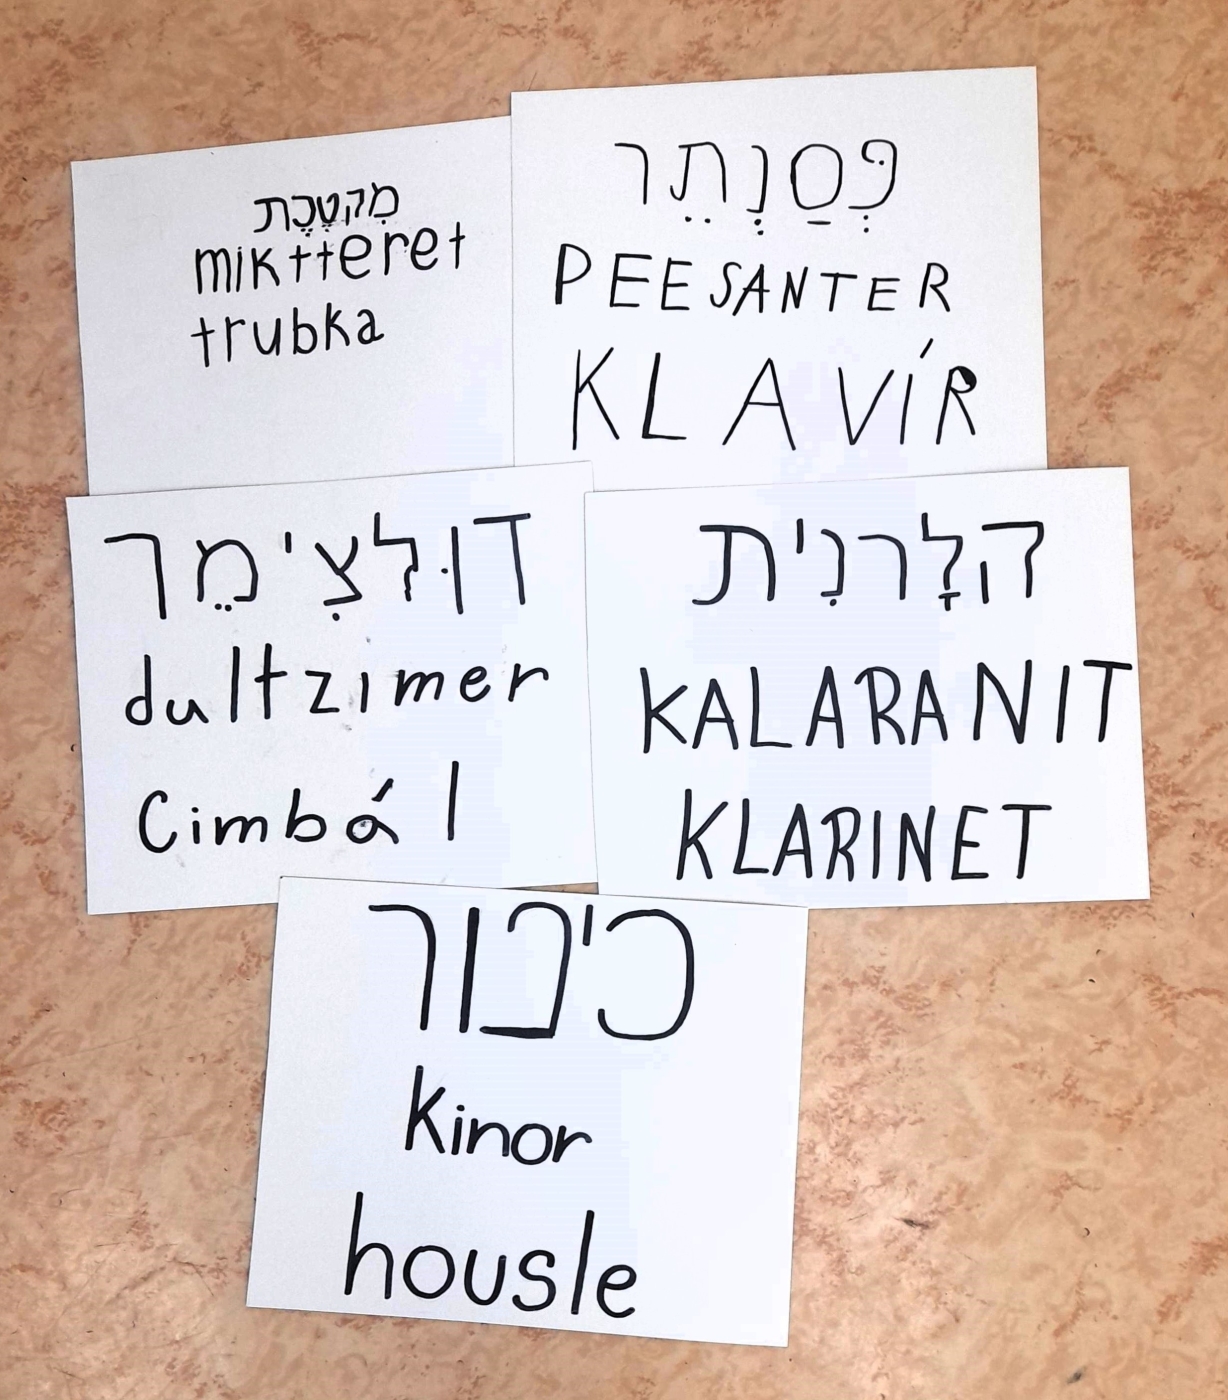 מִקְטֶכֶת
miktteret
trubka
פְּסַנְתֵר
PEESANTER
KLAVÍR
דוּלְצִ'מֵר
dultzimer
Cimbál
קלָרנִית
KALARANIT
KLARINET
כינור
kinor
housle